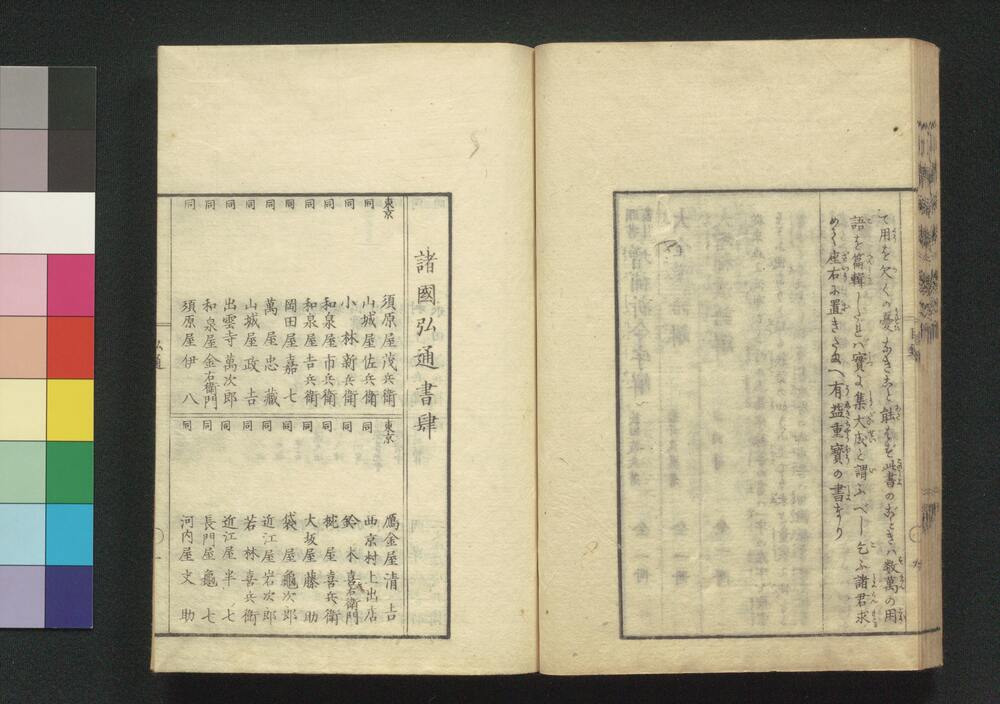 て用を欠くの憂なきこと能はず此書のごときハ数萬の用
語を篇輯したれバ實に集大成と謂ふべし乞ふ諸君求
めて座右に置きたまへ有益重寶の書なり
諸國弘通書肆
東京 須原屋茂兵衛
同 山城屋佐兵衛
同 小林新兵衛
同 和泉屋市兵衛
同 和泉屋吉兵衛
同 岡田屋嘉七
同 萬屋忠藏
同 山城屋政吉
同 出雲寺萬次郎
同 和泉屋金右衛門
同 須原屋伊八
東京 鴈金屋清吉
同 西京村上出店
同 鈴木喜右衛門
同 椀屋喜兵衛
同 大坂屋藤助
同 袋屋龜次郎
同 近江屋岩次郎
同 若林喜兵衛
同 近江屋半七
同 長門屋龜七
同 河内屋文助
弘通